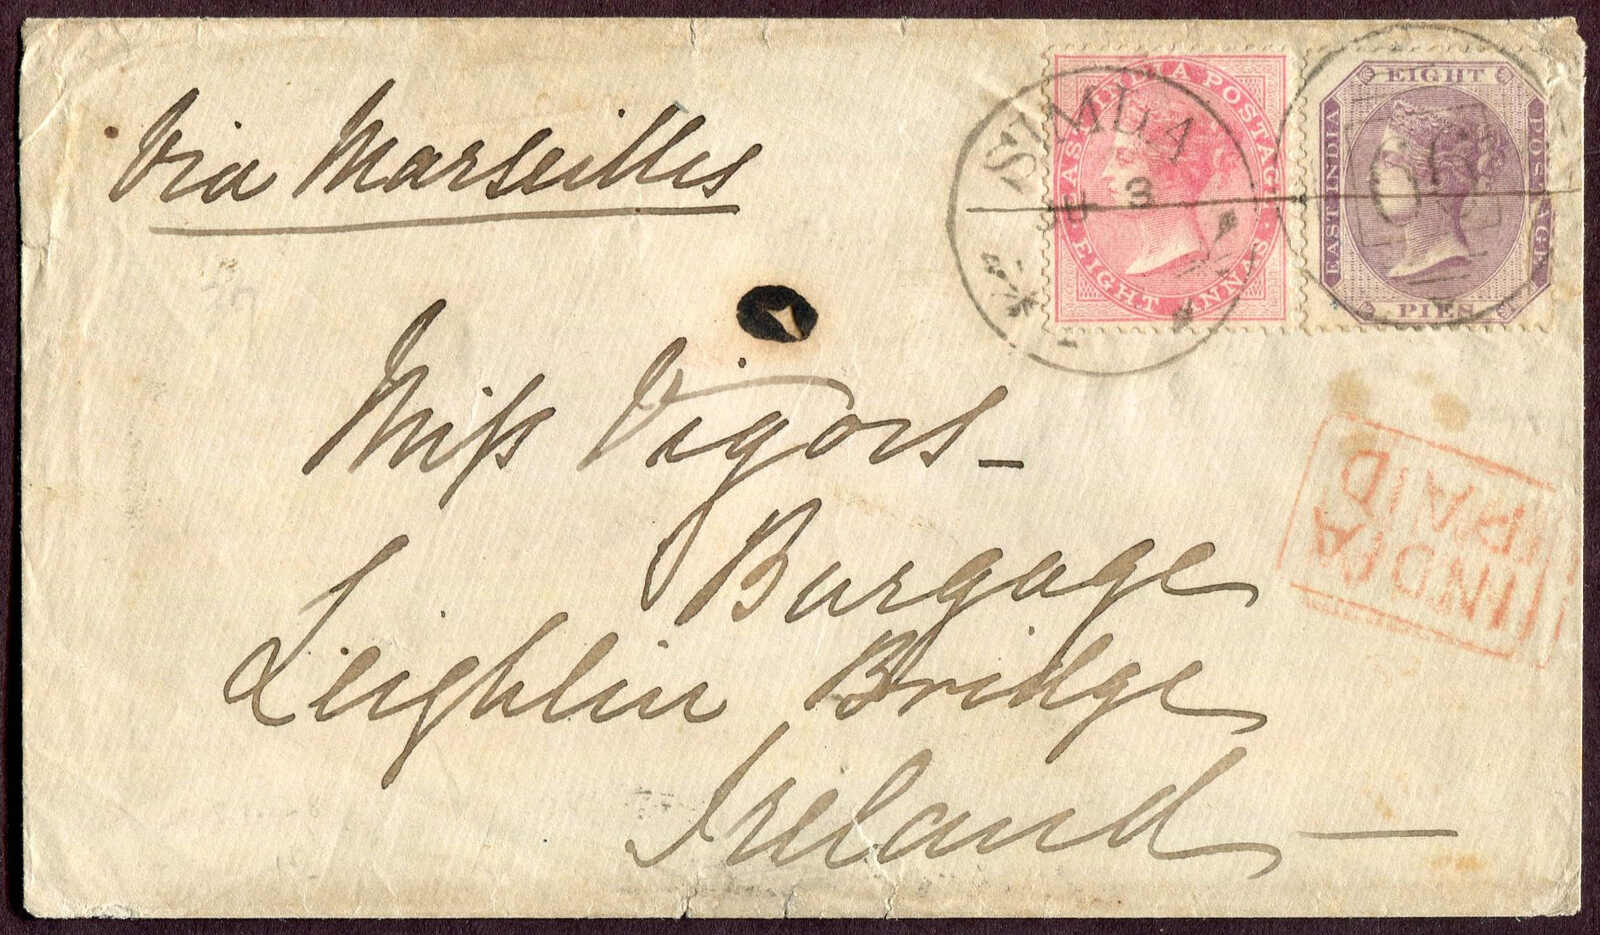 Via Marseilles
EAST INDIA POSTAGE
EIGHT ANNAS
EIGHT
EAST INDIA
POSTAGE
PIES
SIMLA
3
INDIA
PAID
Miss Vigors -
Burgage
Leighlin Bridge
Ireland —